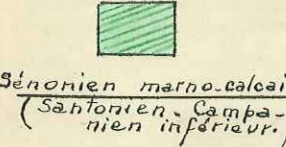 Sénonien marno-calcai
(Santonien. Campa-
nien inférieur.)